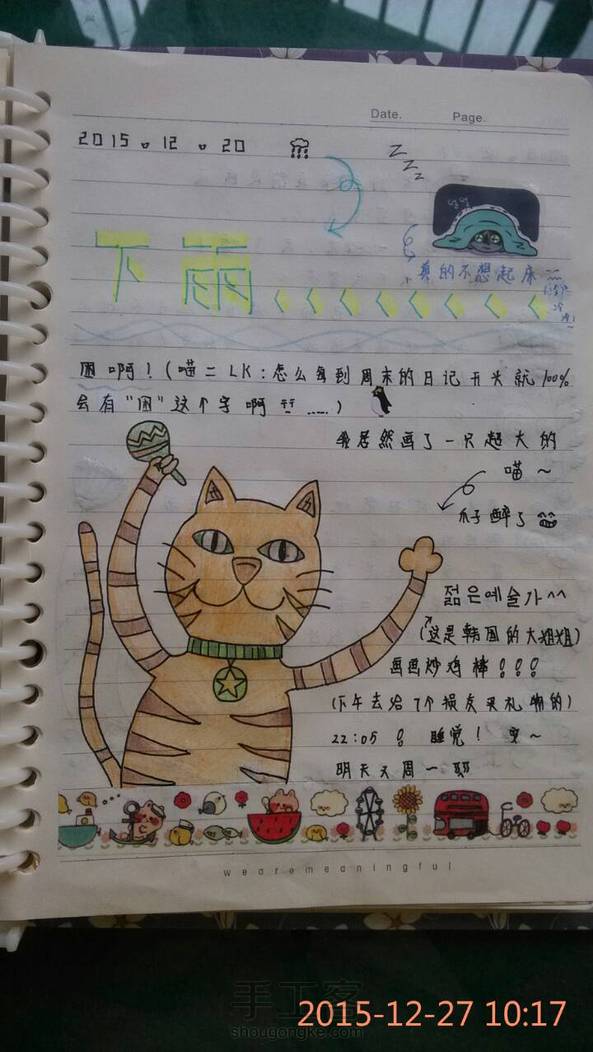 Date. Page.
2015。12。20
z
z
z
真的不想起床
下雨
困啊！（喵二LK：怎么每到周末的日记开头就100%
会有"困"这个字啊 ……）
我居然画了一只超大的
喵～
爪子醉了
젊은예술가^^
（这是韩国的大姐姐）
画画炒鸡棒！！！
（下午去给7个损友买礼物的）
22:05！睡觉！ 安～
明天又周一耶
wearemeaningful
手工客
shougongke.com
2015-12-27 10:17